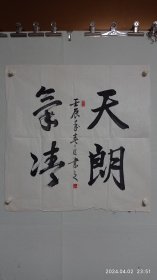 天朗
氣清
壬辰年春月書文
2024.04.02 23:51